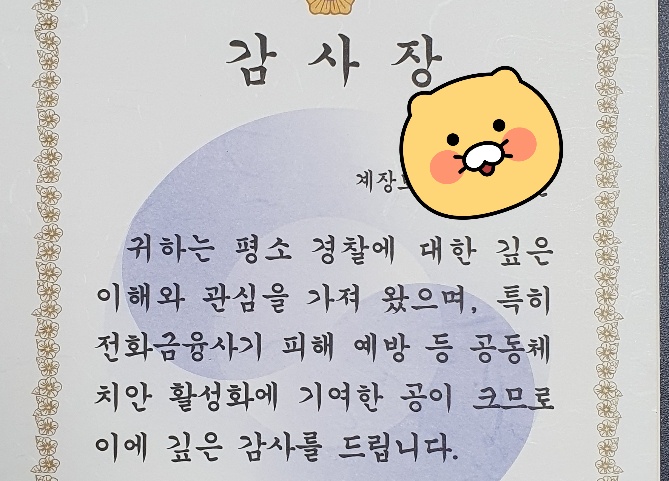 감 사 장
계장
귀하는 평소 경찰에 대한 깊은
이해와 관심을 가져 왔으며, 특히
전화금융사기 피해 예방 등 공동체
치안 활성화에 기여한 공이 크므로
이에 깊은 감사를 드립니다.